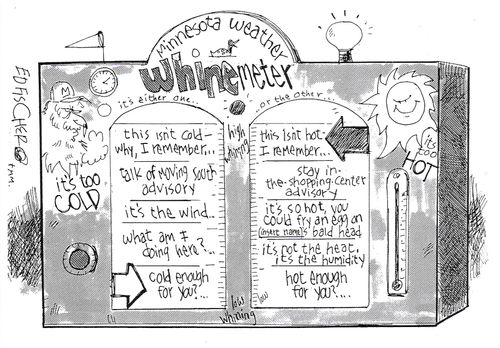 Minnesota weather
whine meter
it's either one...
..or the other...
this isn't cold-
why, I remember...
talk of moving South
advisory
it's the wind...
what am I
doing here?..
cold enough
for you?...
high
whining
low
whining
low
this isn't hot.
I remember...
stay in-
the-shopping-center
advisory
it's so hot, you
could fry an egg on
(insert name)'s bald head
it's not the heat,
it's the humidity
hot enough
for you?...
it's too
COLD
it's too
HOT
M
ED FISCHER